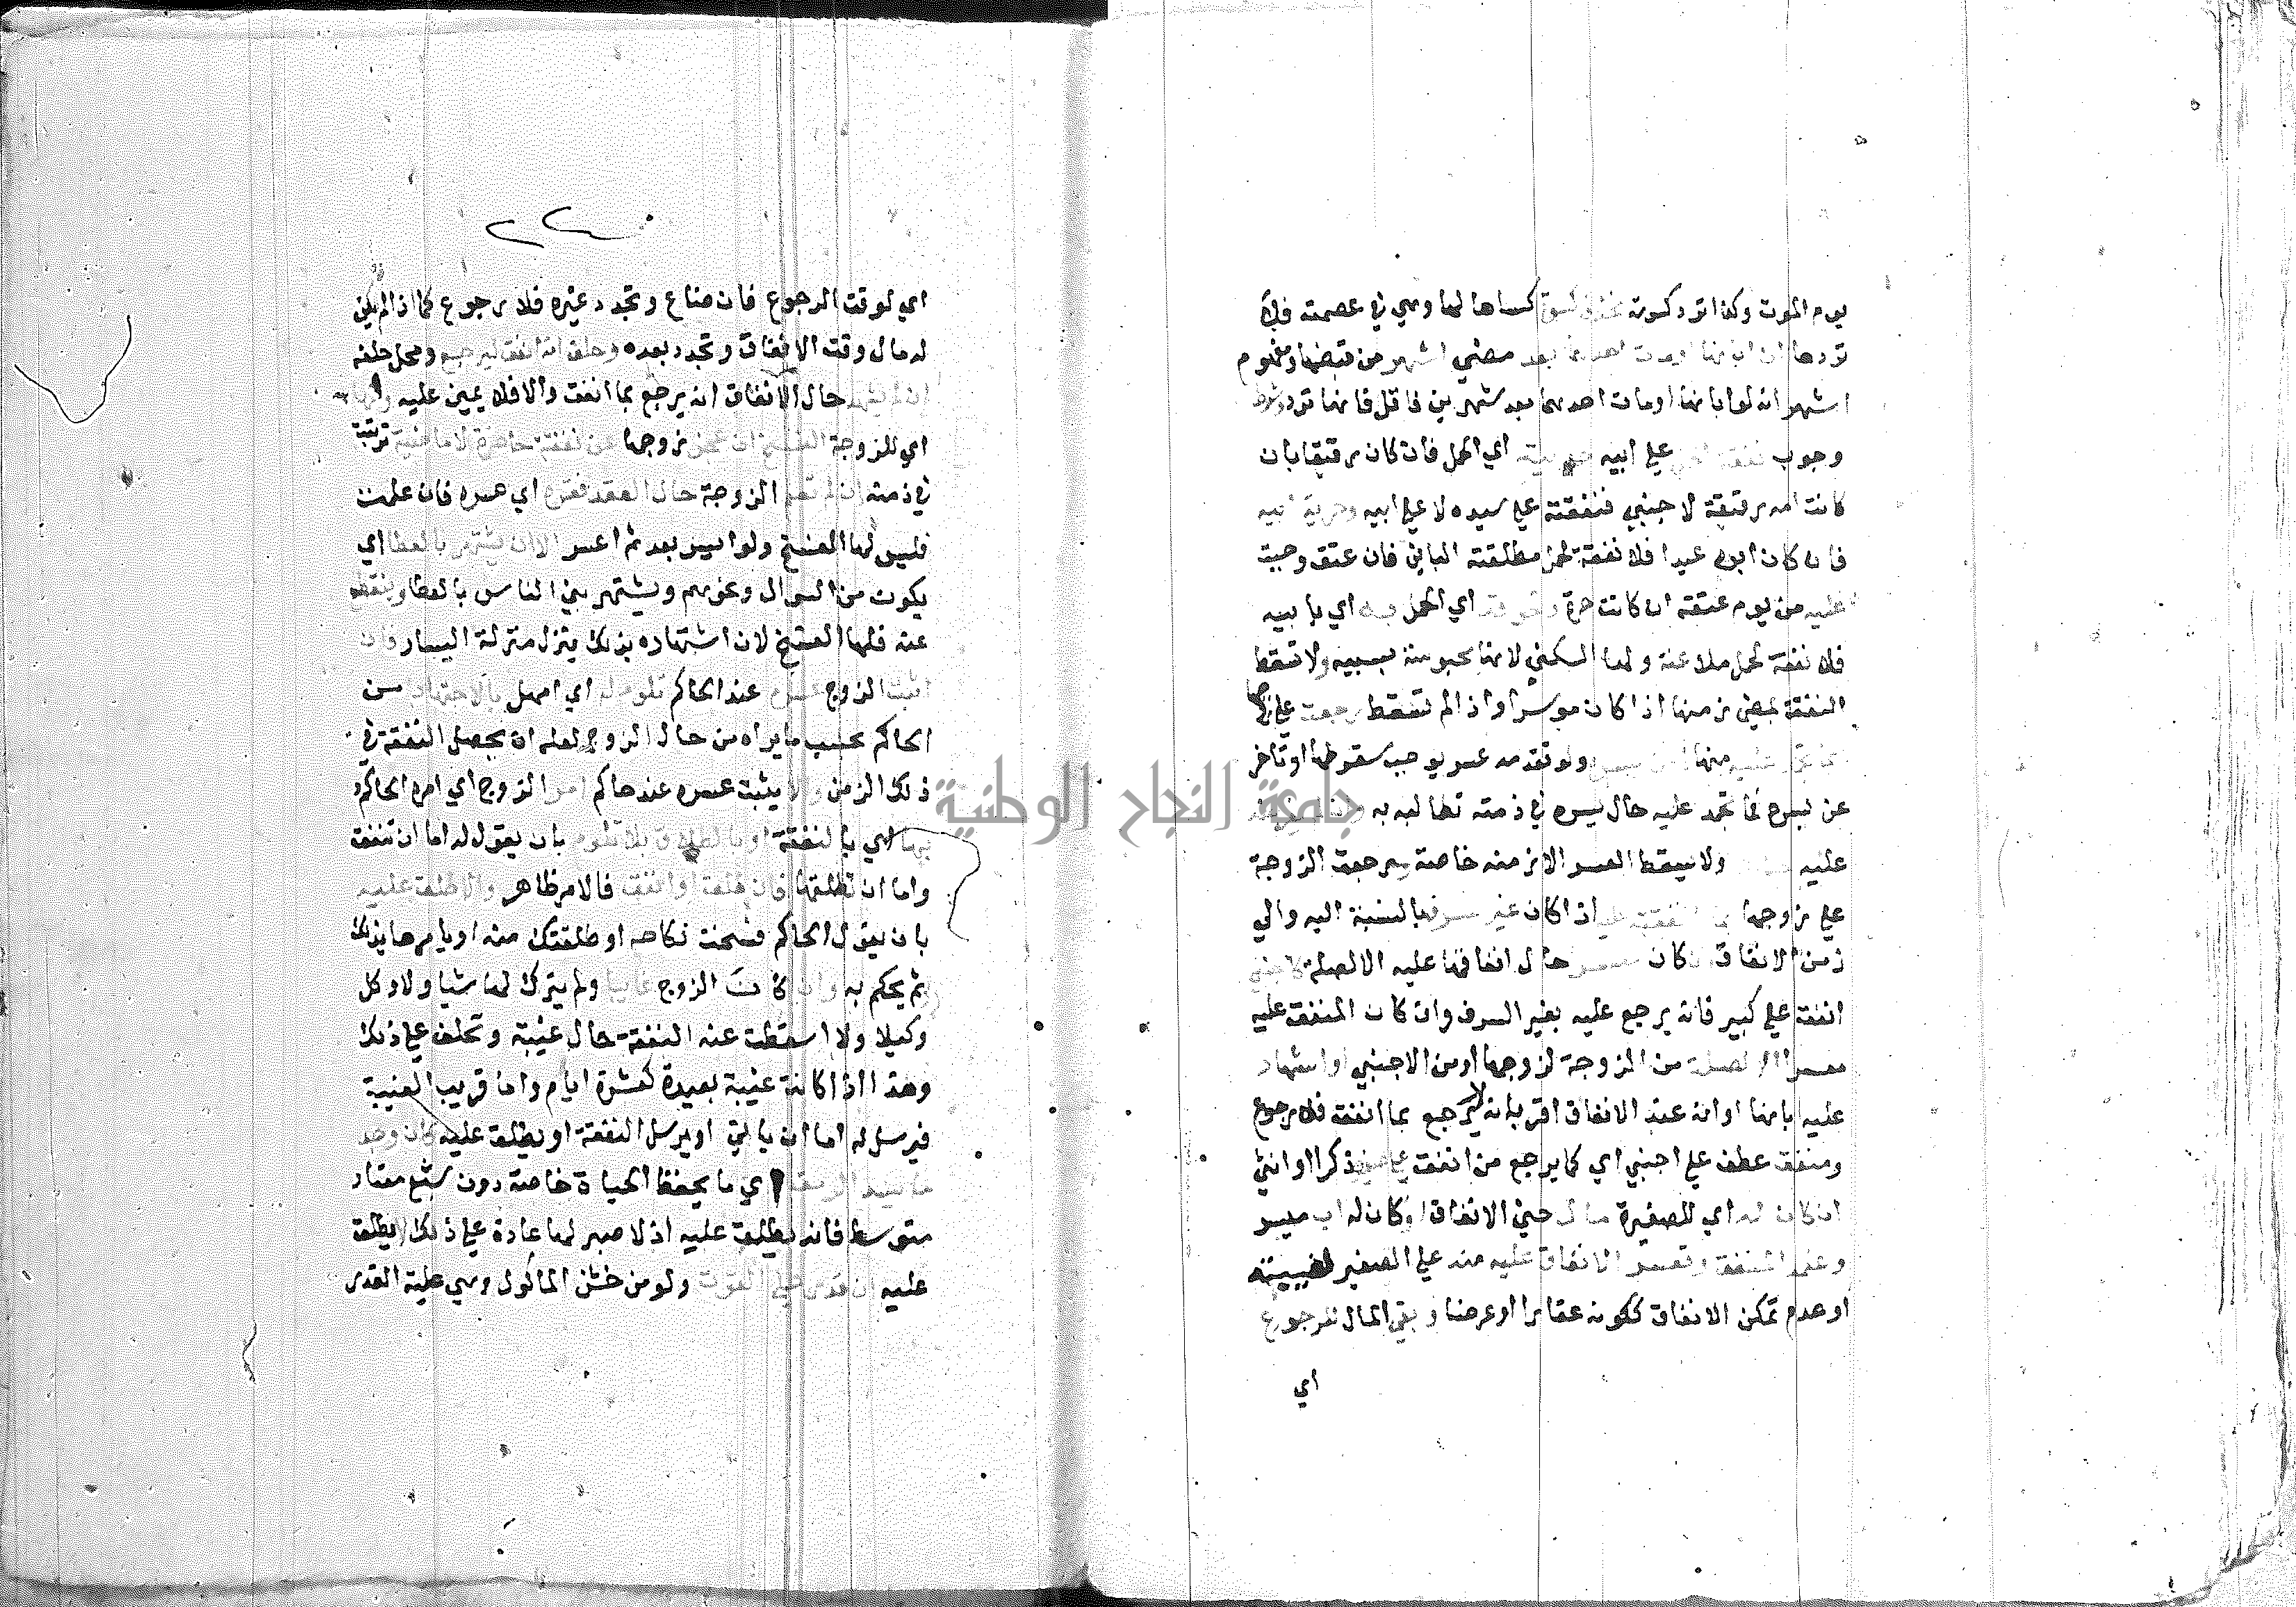 يوم الموت وكذا ترد كسوة كساها لها وهي في عصمته فلا
تردها ان ابانها او مات احدهما بعد مضي اشهر من قبضها ومفهوم
اشهر انه لو ابانها او مات احدهما بعد شهرين فاقل فانها ترد وشرط
وجوب نفقة على ابيه حريته اي الحمل فان كان رقيقا بان
كانت امه رقيقة لاجنبي فنفقته على سيده لا على ابيه وحرية ابيه
فان كان ابوه عبدا فلا نفقة لحمل مطلقته البائن فان عتق وجبت
عليه من يوم عتقه ان كانت حرة ولحوقه اي الحمل به اي بابيه
فلا نفقة لحمل ملاعنة ولها السكني لانها محبوسة بسببه ولا تسقط
النفقة بمضي زمنها اذا كان موسرا واذا لم تسقط رجعت على
منها ولو تقدمه عسر يوجب سقوطها او تاخر
عن يسره فما تجمد عليه حال يسره في ذمته تطالبه به
عليه ولا يسقط العسر الا زمنه خاصة ورجعت الزوجة
على زوجها بما انفقته عليه اذا كان غير سرف بالنسبة اليه والي
زمن الانفاق وان كان معسرا حال انفاقها عليه الا لصلة كاجنبي
انفق على كبير فانه يرجع عليه بغير السرف وان كان المنفق عليه
معسرا الا لصلة من الزوجة لزوجها او من الاجنبي او اشهاد
عليه بانها او انه عند الانفاق اقر بانه لا يرجع بما انفقه فلا رجوع
ومنفق عطف على اجنبي اي كما يرجع من انفق على صغير ذكرا او انثى
ان كان له اي للصغيرة مال حين الانفاق او كان له اب ميسر
وعلم المنفق وتعسر الانفاق عليه منه على الصغير لغيبته
او عدم تمكن الانفاق ككونه عقارا او عرضا وبقي المال للرجوع
اي
٢٢٠
اي لوقت الرجوع فان ضاع وتجدد غيره فلا رجوع كما اذا لم يكن
له مال وقت الانفاق وتجدد بعده وحلف انه انفق ليرجع ومحل حلفه
ان لم يشهد حال الانفاق انه يرجع بما انفق والا فلا يمين عليه ولها
اي للزوجة الفسخ ان عجز زوجها عن نفقة حاضرة لا ماضية ترتبت
في ذمته ان لم تعلم الزوجة حال العقد فقره اي عسره فان علمت
فليس لها الفسخ ولو ايسر بعد ثم اعسر الا ان يشتهر بالعطا اي
يكون من السوال ونحوهم ويشتهر بين الناس بالعطا وينقطع
عنه فلها الفسخ لان اشتهاره بذلك ينزل منزلة اليسار وان
اثبت الزوج عسره عند الحاكم تلوم له اي امهل بالاجتهاد من
الحاكم بحسب ما يراه من حال الزوج لعله ان يحصل النفقة في
ذلك الزمن والا يثبت عسره عند حاكم امر الزوج اي امره الحاكم
بها اي بالنفقة او بالطلاق بلا تلوم بان يقول له اما ان تنفق
واما ان تطلقها فان طلق او انفق فالامر ظاهر والا طلق عليه
بان يقول الحاكم فسخت نكاحه او طلقتك منه او يامرها بذلك
ثم يحكم به وان كانت الزوج غايبا ولم يترك لها شيا ولا وكل
وكيلا ولا اسقطت عنه النفقة حال غيبته وتحلف على ذلك
وهذا اذا كانت غيبة بعيدة كعشرة ايام واما قريب الغيبة
فيرسل له اما ان ياتي او يرسل النفقة او يطلق عليه كان وجد
ما يسد الرمق اي ما يحفظ الحياة خاصة دون شبع معتاد
متوسط فانه يطلق عليه اذ لا صبر لها عادة على ذلك لا يطلق
عليه ان قدر على القوت ولو من خشن الماكول وهي علية القدر
جامعة النجاح الوطنية